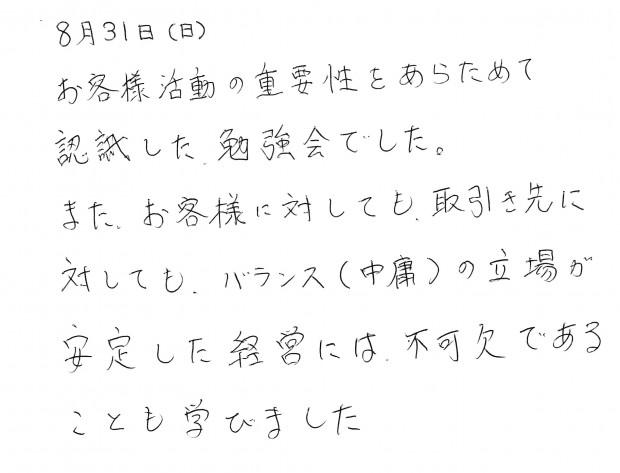 8月31日(日)
お客様活動の重要性をあらためて
認識した、勉強会でした。
また、お客様に対しても、取引き先に
対しても、バランス(中庸)の立場が
安定した経営には、不可欠である
ことも学びました